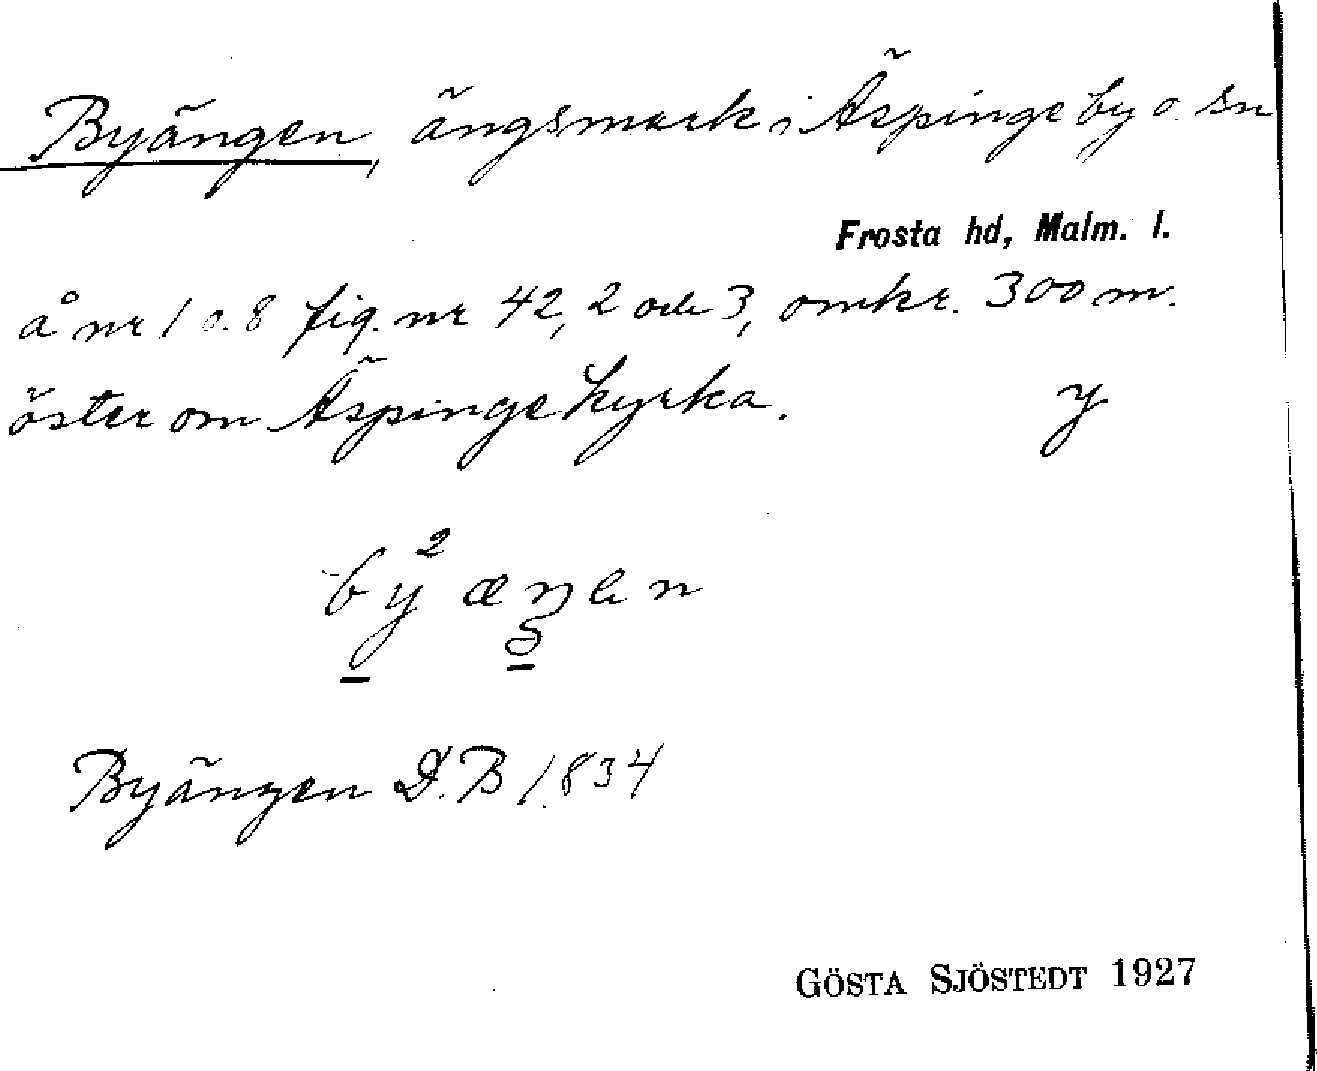 Byängen, ängsmark i Äspinge by o. sn
Frosta hd, Malm. l.
å nr 1 o. 8 fig. nr 42, 2 och 3, omkr. 300 m.
öster om Äspinge kyrka. y
by²æŋen
Byängen D.B 1834
GÖSTA SJÖSTEDT 1927